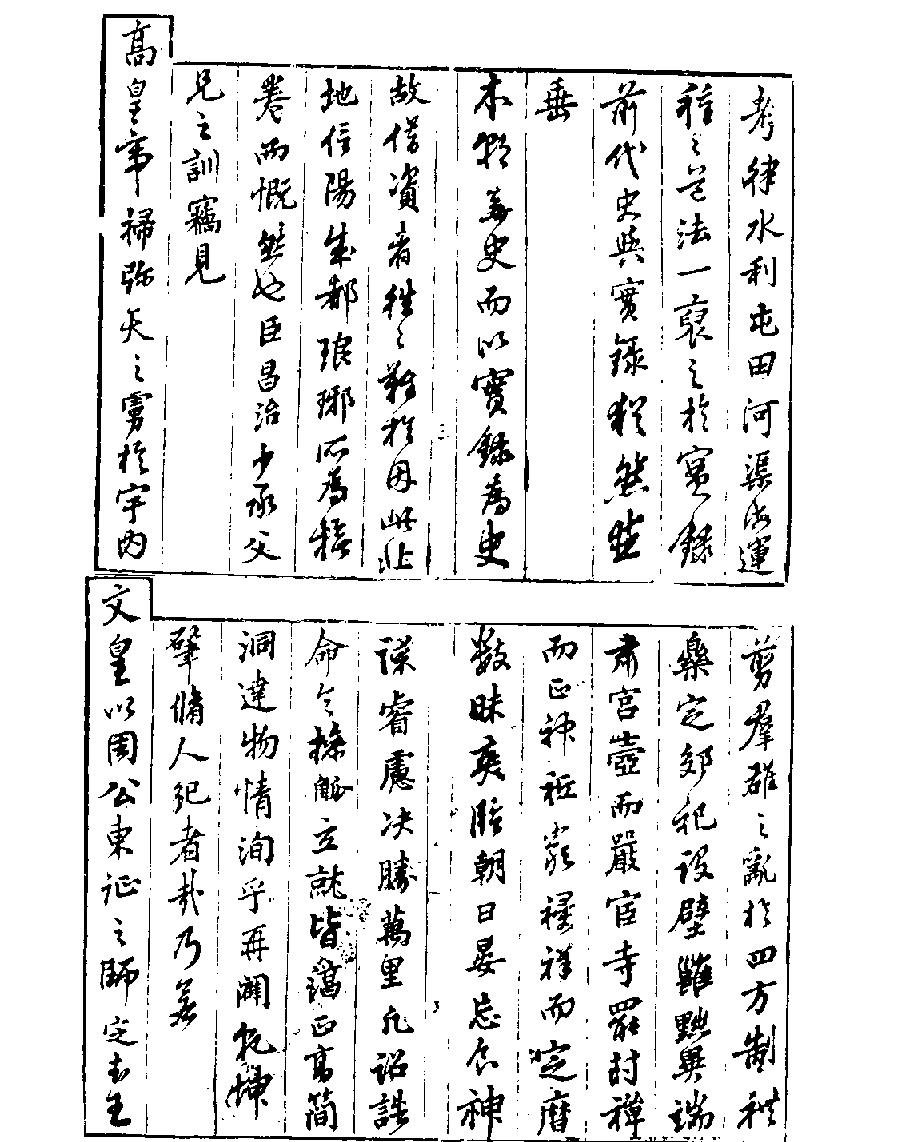 考律水利屯田河渠海運
種々茫法一裒之於實錄
前代史與實錄犂然並
垂
本朝無史而以實錄為史
故借資者往々難於毋此非
地信陽成都琅琊所為接
卷而慨然也臣昌治少承父
兄之訓竊見
高皇帝掃弥天之虜於宇內
剪羣雄之亂於四方制禮
樂定郊祀設壁雝黜異端
肅宮壼而嚴宦寺罷封禪
而正神祇崇禋祥而定曆
數昧爽臨朝日晏忘食神
謀睿慮決勝萬里凡詔誥
命令操觚立就皆謨正高簡
洞達物情洵乎再闢乾坤
肇脩人紀者哉乃若
文皇以周公東征之師定王